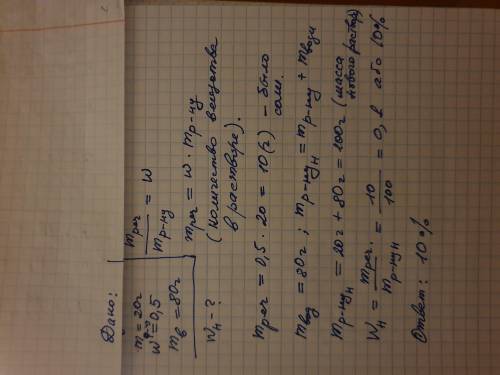 Дано:
m = 20г
w = 0,5
mв = 80г
wн - ?
mреч / mр-ну = w
mреч = w · mр-ну
(количество вещества
в растворе).
mреч = 0,5 · 20 = 10 (г) - было
соли.
mвод = 80г ; mр-ну н = mр-ну + mводи
mр-ну н = 20г + 80г = 100г (масса
нового раствора)
wн = mреч. / mр-ну н = 10 / 100 = 0,1 або 10%
Ответ: 10%